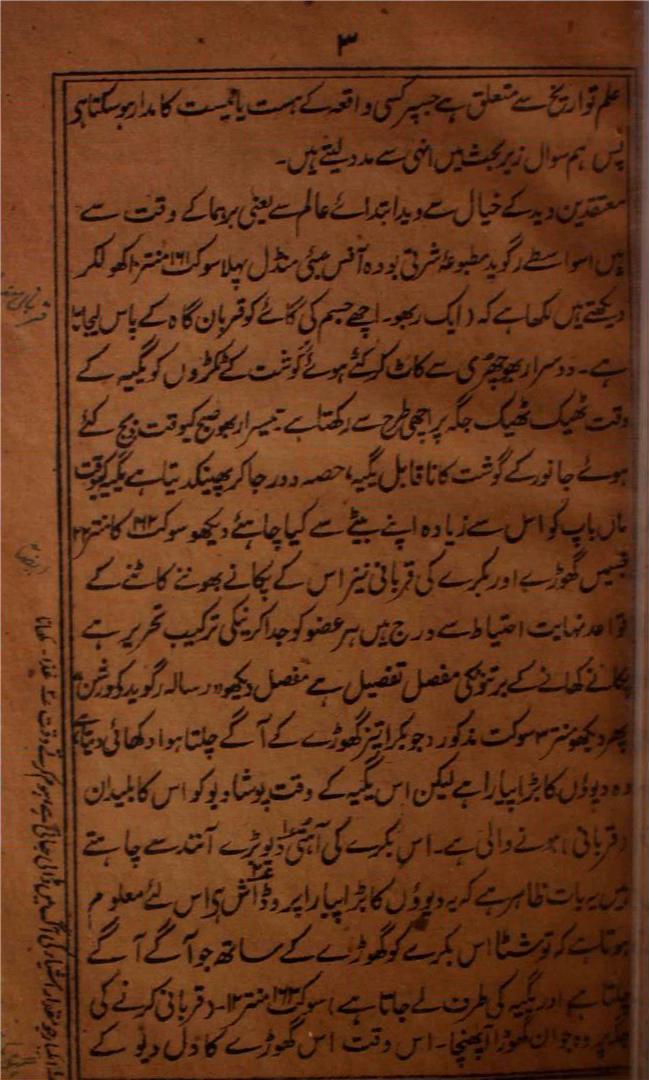 ۳
علم تواریخ سے متعلق ہے جسپر کسی واقعہ کے ہست یا نیست کا مدار ہو سکتا ہی
پس ہم سوال زیر بحث میں انہی سے مدد لیتے ہیں۔
معتقدین وید کے خیال سے وید ابتدائے عالم سے یعنی برہما کے وقت سے
ہیں اسواسطے رگوید مطبوعہ شرتی بودہ آفس مبئی منڈل پہلا سوکت ۱۶۱ منتر ۱۰ کھولکر
دیکھتے ہیں لکھا ہے کہ (ایک ربھو۔ اچھے جسم کی گائے کو قربان گاہ کے پاس لیجاتا
ہے۔ دوسرا ربھو چھری سے کاٹ کر کٹے ہوئے گوشت کے ٹکڑوں کو یگیہ کے
وقت ٹھیک ٹھیک جگہ پر اچھی طرح سے رکھتا ہے۔ تیسرا ربھو صبح کیوقت ذبح کئے
ہوئے جانور کے گوشت کا ناقابل یگیہ، حصہ دور جا کر پھینکدیتا ہے یگیہ کیوقت
ماں باپ کو اس سے زیادہ اپنے بیٹے سے کیا چاہئے دیکھو سوکت ۱۶۲ کا منتر
جسمیں گھوڑے اور بکرے کی قربانی نیز اس کے پکانے بھوننے کاٹنے کے
قواعد نہایت احتیاط سے درج ہیں ہر عضو کو جدا کرنیکی ترکیب تحریر ہے
پکانے کھانے کے برتنونکی مفصل تفصیل ہے مفصل دیکھو رسالہ رگوید کو درشن
پھر دیکھو منتر ۳ سوکت مذکور (جو بکرا تیز گھوڑے کے آگے چلتا ہوا دکھائی دیتا ہے
وہ دیوؤں کا بڑا پیارا ہے لیکن اس یگیہ کے وقت پوشا دیو کو اس کا بلیدان
(قربانی) ہونے والی ہے۔ اس بکرے کی آہتی دیو بڑے آنند سے چاہتے
ہیں یہ بات ظاہر ہے کہ یہ دیوؤں کا بڑا پیارا پروڈاش ہی اس لئے معلوم
ہوتا ہے کہ توشٹا اس بکرے کو گھوڑے کے ساتھ جو آگے آگے
چلتا ہے اور یگیہ کی طرف لے جاتا ہے) سوکت ۱۶۳ منتر ۱۲۔ (قربانی کرنے کی
جگہ پر وہ جوان گھوڑا آپہنچا۔ اس وقت اس گھوڑے کا دل دیو کے